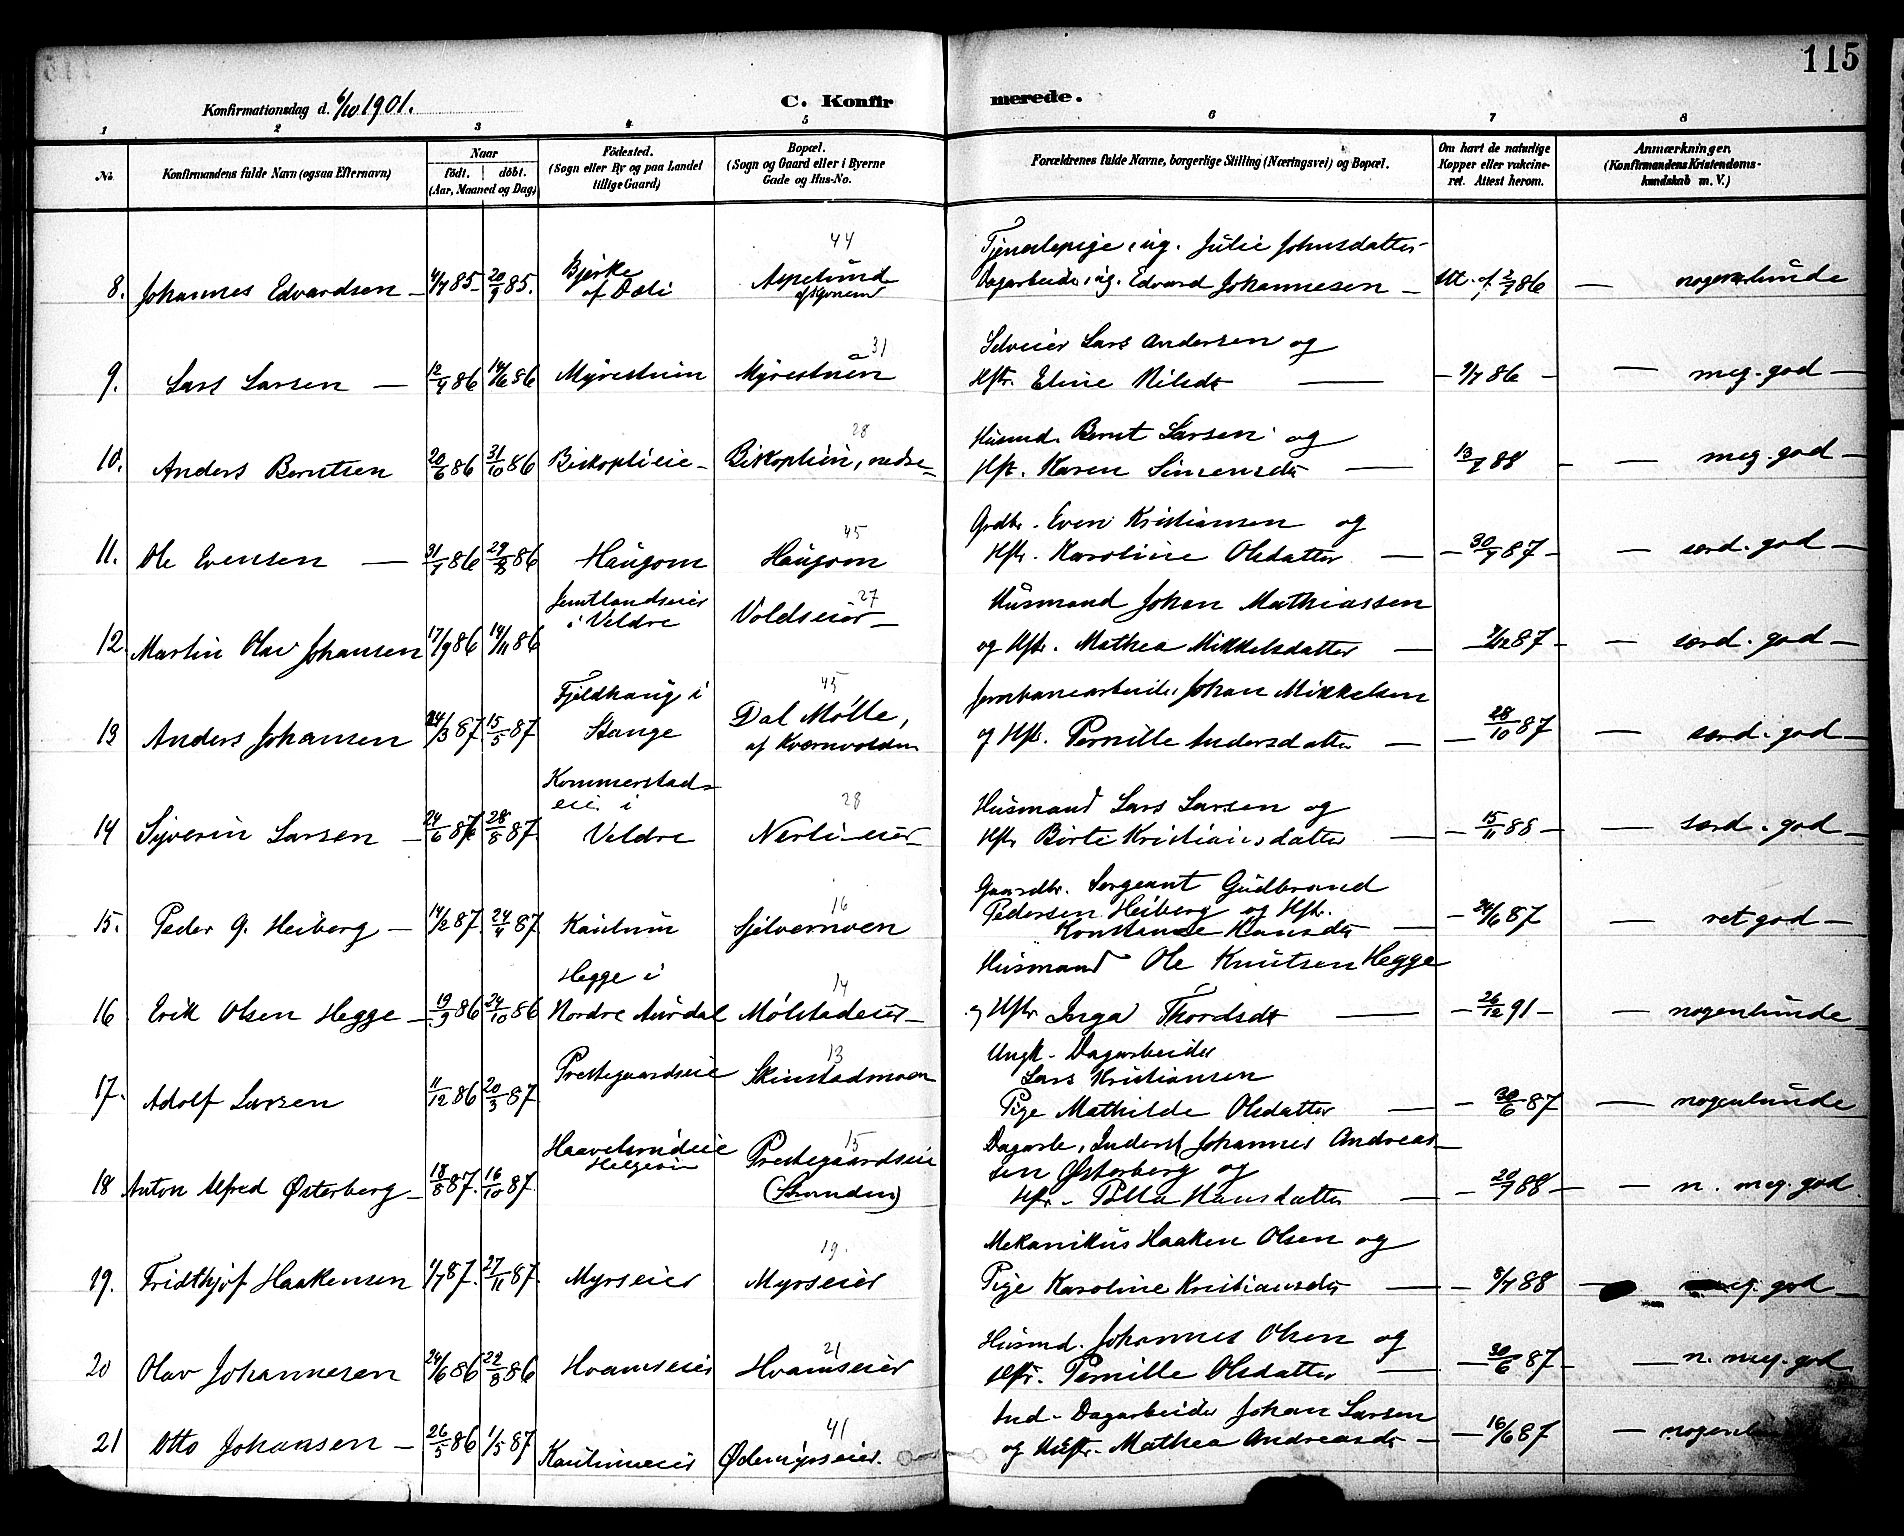 115
Konfirmationsdag d. 6/10 1901.
C. Konfirmerede.
1 2 3 4 5 6 7 8
No.
Konfirmandens fulde Navn (ogsaa Efternavn)
Naar
födt. döbt.
(Aar, Maaned og Dag)
Födested.
(Sogn eller By og paa Landet
tillige Gaard)
Bopæl.
(Sogn og Gaard eller i Byerne
Gade og Hus-No.
Forældrenes fulde Navne, borgerlige Stilling (Næringsvei) og Bopæl.
Om havt de naturlige
Kopper eller vakcine-
ret. Attest herom.
Anmærkninger.
(Konfirmandens Kristendoms-
kundskab m. V.)
44
Tjenestepige, ug. Julie Johnsdatter
8. Johannes Edvardsen 4/7 85 20/9 85. Bjerke af Dæli Aspelund Dagarbeider, ug. Edvard Johannesen 86 nogenlunde
31
Selveier Lars Andersen og
9. Lars Larsen 12/4 86 14/6 86 Myrestuen Myrestuen Hstr. Eline Nilsdt 9/7 86 meg. god
28
Husmd. Bernt Larsen og
10. Anders Berntsen 20/6 86 31/10 86 Biskoplieie Biskoplien, nedre Hstr. Karen Simensdtr 13/7 88 meg. god
45
Grdbr. Even Kristiansen og
11. Ole Evensen 31/7 86 29/8 86 Haugom Haugom Hstr. Karoline Olsdatter 30/7 87 særd. god
Jemtlandseier
i Veldre
27
Voldseier
Husmand Johan Mathiassen
12 Martin Olav Johansen 17/9 86 14/11 86 og Hstr. Mathea Mikkelsdatter 87 særd. god
Fjeldhaug i
Stange
45
Dal Mølle,
af Kværnvolden
Jernbanearbeider Johan Mikkelsen
13 Anders Johansen 24/3 87 15/5 87 og Hstr. Pernille Andersdatter 28/10 87 særd. god
Kommerstad-
eie i
Veldre
28
Husmand Lars Larsen og
14 Syverin Larsen 24/6 87 28/8 87 Nerlieier Hstr Børte Kristiansdatter 15/11 88 særd. god
16
Gaardbr. Sergeant Gudbrand
Pedersen Heiberg og Hstr.
Konstanse Hansdtr
15. Peder G. Heiberg 14/2 87. 24/4 87 Kautum Sjelvernoen 24/6 87 ret god
Hegge i
Nordre Aurdal
14
Husmand Ole Knutsen Hegge
16 Erik Olsen Hegge 19/9 86 24/10 86 Mølstadeier og Hstr Inga Thordsdt 26/12 91 nogenlunde
13
Ungk. Dagarbeider
Lars Kristiansen
17. Adolf Larsen 11/12 86 20/3 87 Prestegaardseie Skinstadmoen Pige Mathilde Olsdatter 30/6 87 nogenlunde
15
Prestegaardseie
(Stranden)
Dagarb., Inderst Johannes Andreas-
sen Østerberg og
18 Anton Alfred Østerberg 18/8 87. 16/10 87. Hstr. Hansdatter 20/7 88 n. meg. god
19.
Mekanikus Haaken Olsen og
19. Fridthjof Haakensen 1/7 87. 27/11 87. Myrseier Myrseier Pige Karoline Kristiansdtr 8/7 88 meg. god
21
Husmd. Johannes Olsen og
20 Olav Johannesen 24/6 86 22/8 86 Hvamseier Hvamseier Hstr. Pernille Olsdatter 30/6 87 n. meg. god
41
Ind. Dagarbeider Johan Larsen
21 Otto Johansen 26/5 86 1/5 87 Kautumeier Ødemyrseier. og Hstr. Mathea Andreasdtr 16/6 87